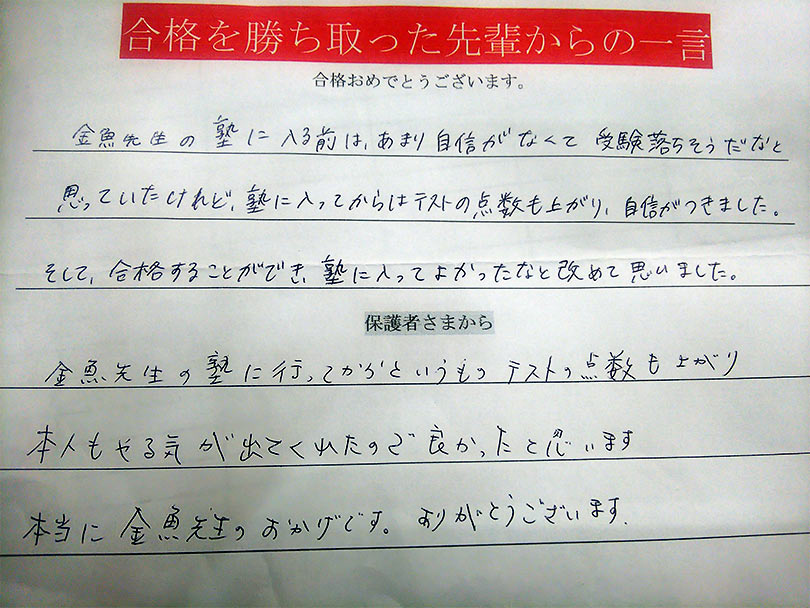 合格を勝ち取った先輩からの一言
合格おめでとうございます。
金魚先生の塾に入る前は、あまり自信がなくて受験落ちそうだなと
思っていたけれど、塾に入ってからはテストの点数も上がり、自信がつきました。
そして、合格することができ、塾に入ってよかったなと改めて思いました。
保護者さまから
金魚先生の塾に行ってからというものテストの点数も上がり
本人もやる気が出てくれたので良かったと思います
本当に金魚先生のおかげです。ありがとうございます.